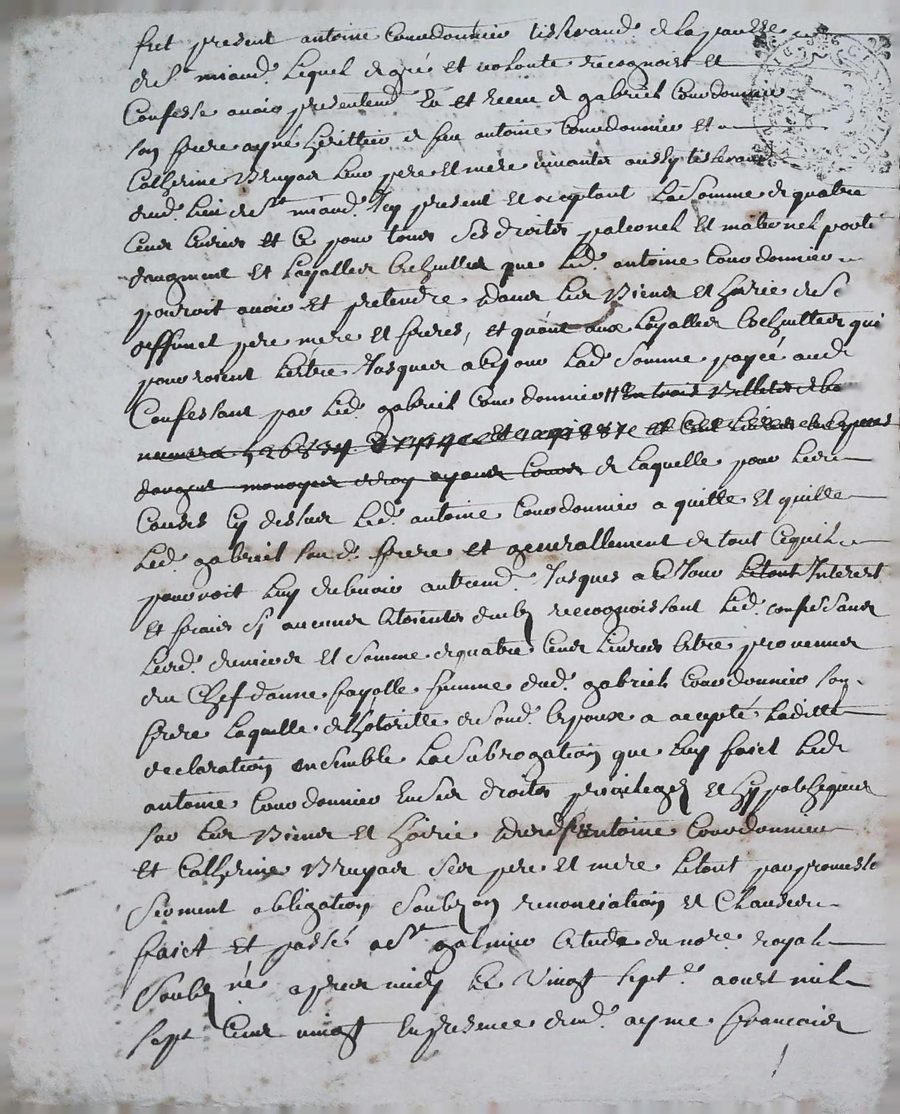 fut present antoine Courdonnier tisserand de la paroisse
de St miand. Lequel de gré et volonte recognoist et
Confesse avoir presentemt. Eu et receu de gabriel Courdonnier
son frere ayné heritier de feu antoine Courdonnier et
Catherine Bruyas leur pere et mere vivants aussy tisserand
dud. lieu de St miand. Icy present et acceptant La somme de quatre
Cens livres et Ce pour tous ses droits paternel et maternel porté
daugment et Legattes Eschuttes que Led. antoine Courdonnier
pourroit avoir et pretendre dans Les Biens et hoirie de Se
deffunct pere mere et freres, et quant aux Legattes Eschuttes qui
pourroient Lestre Jusques a Ce jour Lad. Somme payée aud.
Confessant par Led. gabriel Courdonnier En trois Billets de
numero et Cent Livres en Especes
dargent monoyes du roy ayant Cours de Laquelle pour Les
Causes Cy dessus Led. antoine Courdonnier a quitté et quitte
Led. gabriel sond. frere et generallement de tout Ce quil
pourroit Luy debvoir autremt. Jusques a Ce Jour Letout Interest
et frais Si aucuns Estoients deubs recognoissant Led. confessant
Lesd. deniers et Somme de quatre Cens Livres Estre provenues
du Chef danne fayolle femme dud. gabriel Courdonnier son
frere Laquelle de Lhotoritte de sond. Espoux a accepté Laditte
declaration ensemble La Subrogation que Luy faict Led.
antoine Courdonnier En ses droits privileges et hypotheques
sur Les Biens et hoirie dud. ft antoine Courdonnier
et Catherine Bruyas ses pere et mere Letout par promesse
Serment obligation Soubzon renonciation et Clauses
faict et passé a St galmier Estude du nore. royal
Soubzné apres midy Le Vingt sept e. aoust mil
sept Cens vingt En presence de md. ayme francois